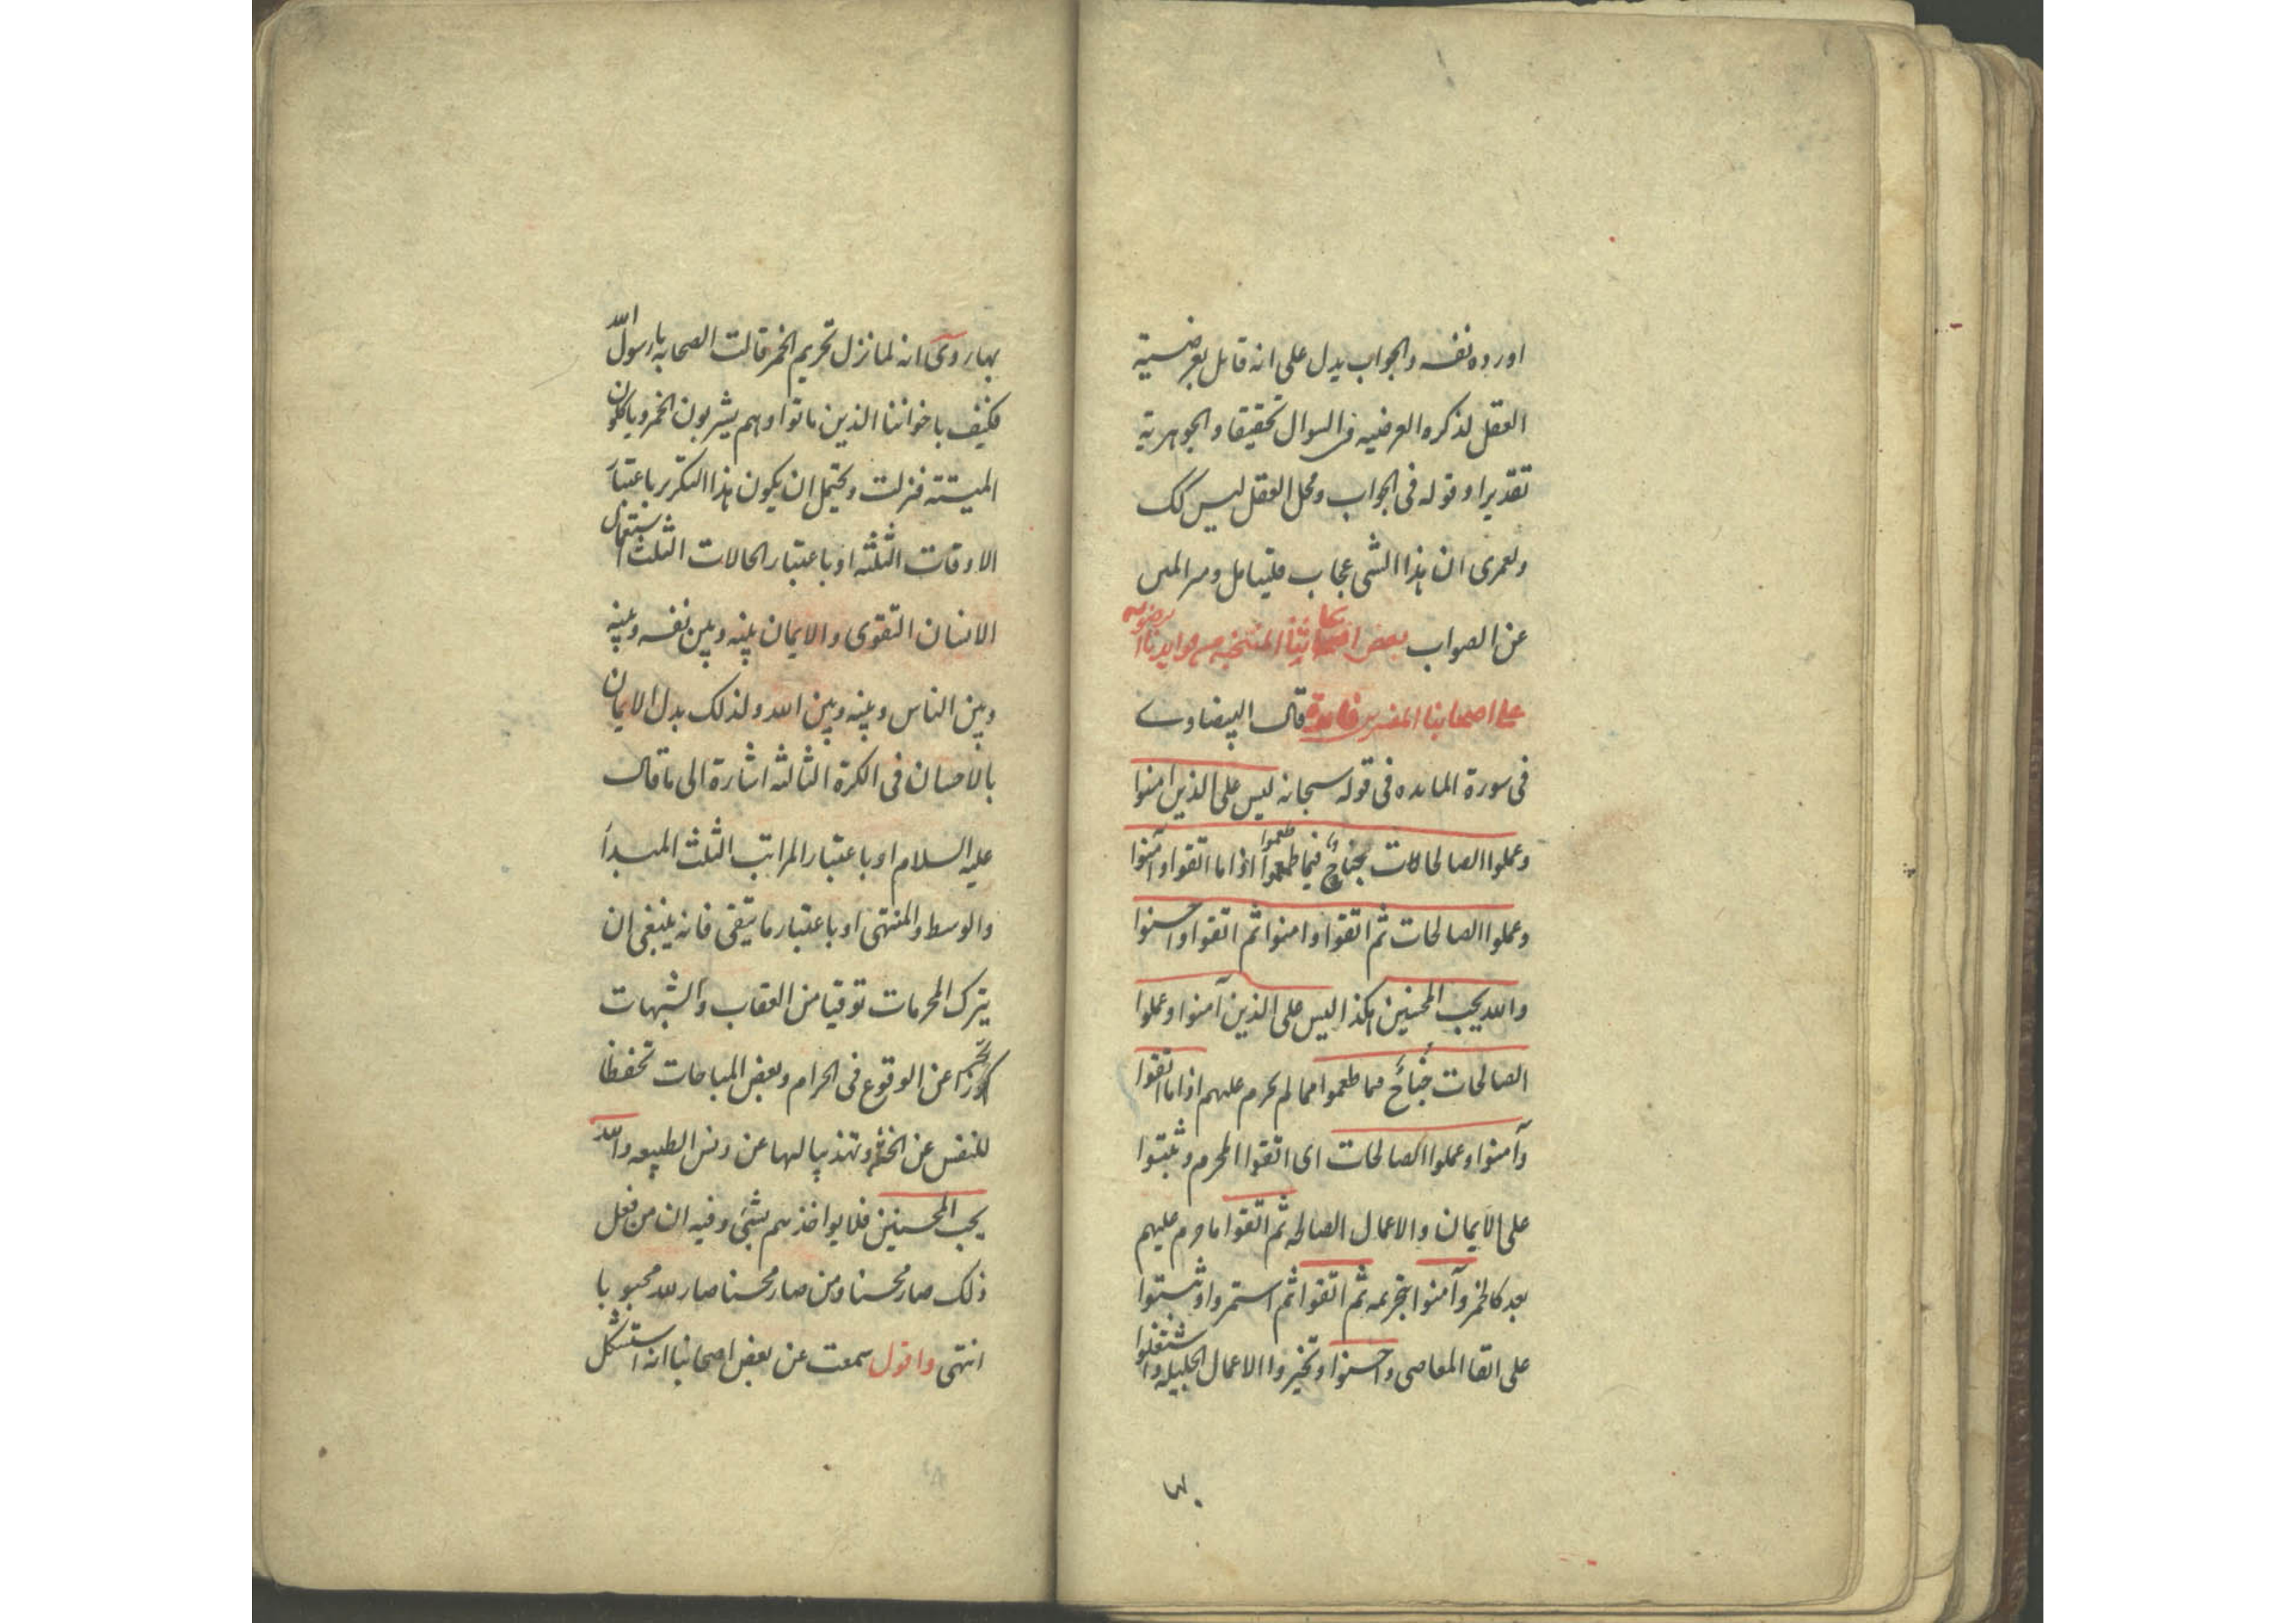 اورده نفسه والجواب يدل على انه قابل بعرضية
العقل لذكره العرضيه فى السوال تحقيقا والجوهرية
تقديرا وقوله فى الجواب ومحل العقل ليس كك
ولعمرى ان هذا الشى عجاب فليتامل ومن الله
عن الصواب بعض
على اصحابنا المفسرين فايدة قال البيضاوے
فى سورة المايده فى قوله سبحانه ليس على الذين امنوا
وعملوا الصالحات جناحٌ فيما طعموا اذا ما اتقوا وآمنوا
وعملوا الصالحات ثم اتقوا وامنوا ثم اتقوا واحسنوا
والله يحب المحسنين هكذا ليس على الذين آمنوا وعملوا
الصالحات جُنَاحٌ فيما طعموا مما لم يحرم عليهم اذا ما اتقوا
وآمنوا وعملوا الصالحات اى اتقوا المحرم وثبتوا
على الايمان والاعمال الصالحه ثم اتقوا ما حرم عليهم
بعد كالخمر وآمنوا بتحريمه ثم اتقوا ثم استمروا وثبتوا
على اتقا المعاصى واحسنوا وتخيروا الاعمال الجليله واشتغلوا
بها روى انه لما نزل تحريم الخمر قالت الصحابه يا رسول الله
فكيف باخواننا الذين ماتوا وهم يشربون الخمر وياكلون
الميتته فنزلت ويحتمل ان يكون هذا التكرير باعتبار
الاوقات الثلثه او باعتبار الحالات الثلث استعمال
الانسان التقوى والايمان بينه وبين نفسه وبينه
وبين الناس وبينه وبين الله ولذلك بدل الايمان
بالاحسان فى الكرة الثالثه اشارة الى ما قال
عليه السلام او باعتبار المراتب الثلث المبدأ
والوسط والمنتهى او باعتبار ما يتقى فانه ينبغى ان
يترك المحرمات توقيا من العقاب والشبهات
تحرزا عن الوقوع فى الحرام وبعض المباحات تحفظا
للنفس عن الخسة وتهذيبا لها عن دنس الطبيعه والله
يحب المحسنين فلا يواخذهم بشئ وفيه ان من فعل
ذلك صار محسنا ومن صار محسنا صار لله محبوبا
انتهى واقول سمعت عن بعض اصحابنا انه استشكل